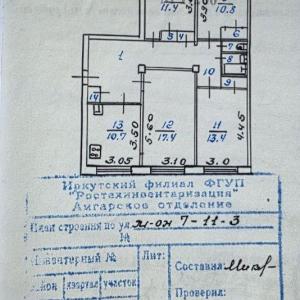 11.4
3.90
10.8
3
4
6
7
1
8
10
9
14
13
10.7
3.50
5.60
12
17.4
11
13.4
4.45
3.05
3.10
3.0
Иркутский филиал ФГУП
"Ростехинвентаризация"
Ангарское отделение
План строения по ул. 7-11-3
№
Инвентарный №
Лит:
Составил:
Район квартал участок
Проверил: